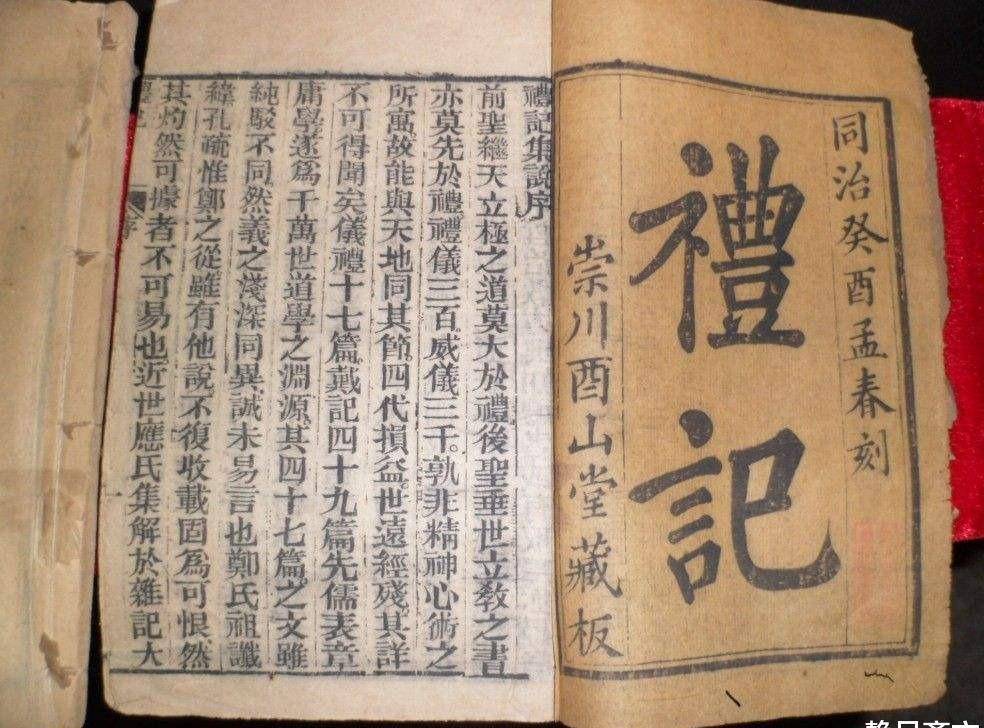 同治癸酉孟春刻
禮記
崇川酉山堂藏板
禮記集說序
前聖繼天立極之道莫大於禮後聖垂世立教之書
亦莫先於禮禮儀三百威儀三千孰非精神心術之
所寓故能與天地同其節四代損益世遠經殘其詳
不可得聞矣儀禮十七篇戴記四十九篇先儒表章
庸學遂爲千萬世道學之淵源其四十七篇之文雖
純駁不同然義之淺深同異誠未易言也鄭氏祖讖
緯孔疏惟鄭之從雖有他說不復收載固爲可恨然
其灼然可據者不可易也近世應氏集解於雜記大
禮記 序